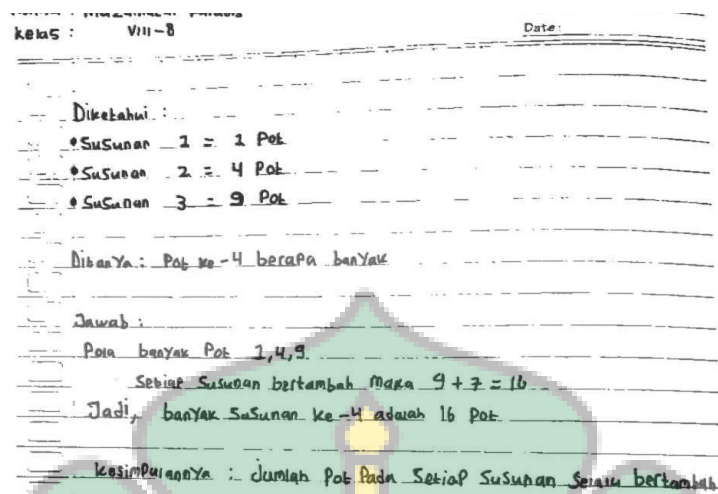 kelas : VIII-8
Date:
Diketahui :
• Susunan 1 = 1 Pot
• Susunan 2 = 4 Pot
• Susunan 3 = 9 Pot
Ditanya : Pot ke-4 berapa banyak
Jawab :
Pola banyak Pot 1,4,9
Setiap Susunan bertambah maka 9 + 7 = 16
Jadi, banyak Susunan ke-4 adalah 16 Pot
kesimpulannya : Jumlah Pot Pada Setiap Susunan Selalu bertambah